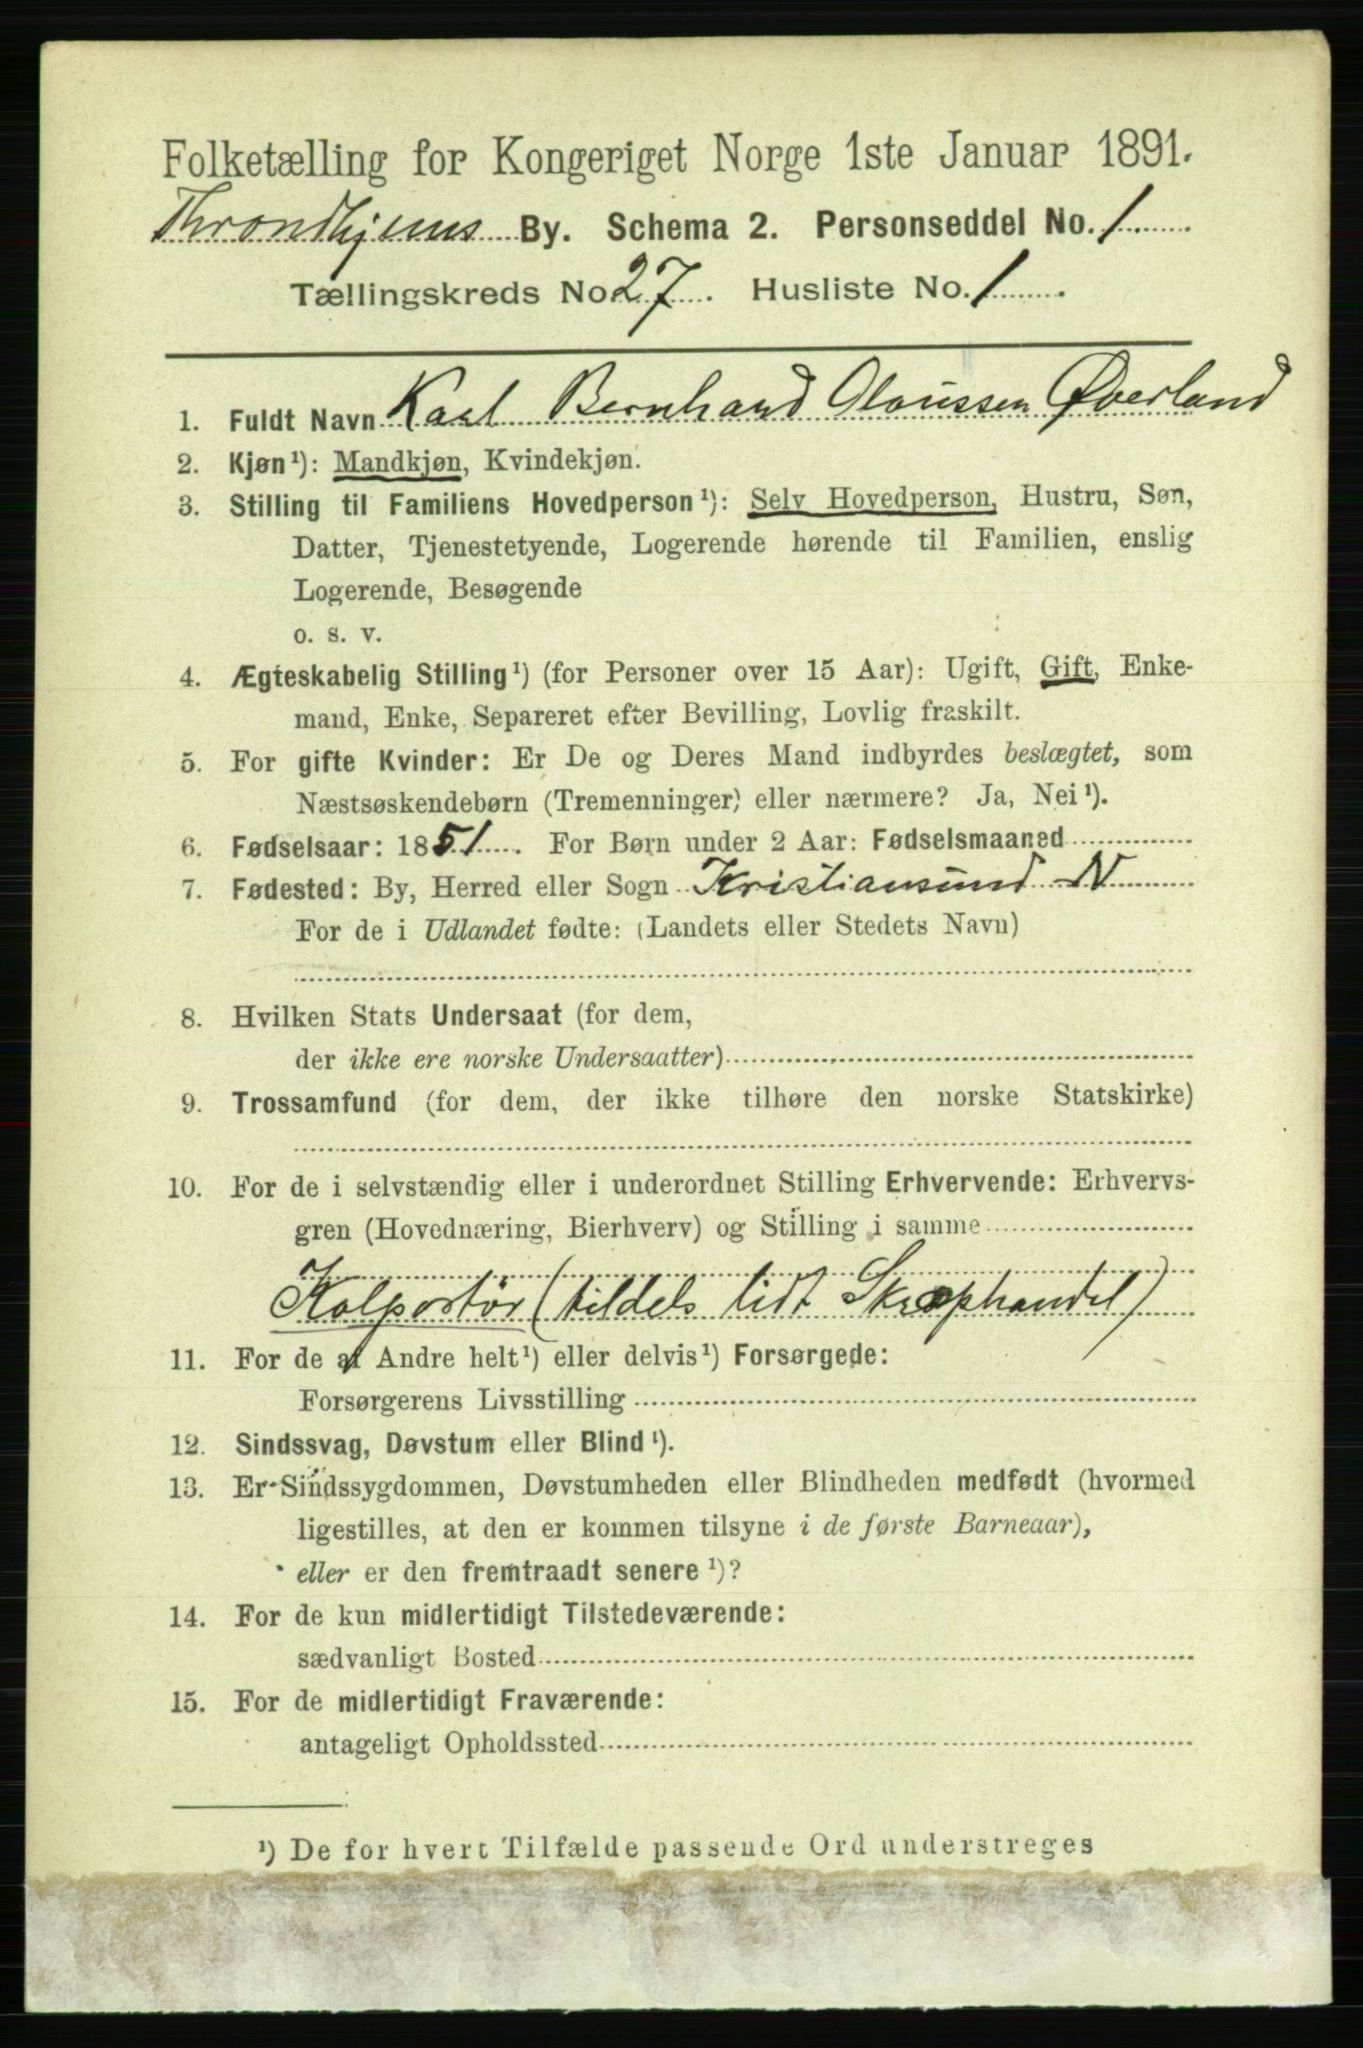 Folketælling for Kongeriget Norge 1ste Januar 1891.
Throndhjems By. Schema 2. Personseddel No. 1
Tællingskreds No. 27. Husliste No. 1
1. Fuldt Navn Karl Bernhard Olaussen Øverland
2. Kjøn¹): Mandkjøn, Kvindekjøn.
3. Stilling til Familiens Hovedperson¹): Selv Hovedperson, Hustru, Søn,
Datter, Tjenestetyende, Logerende hørende til Familien, enslig
Logerende, Besøgende
o. s. v.
4. Ægteskabelig Stilling¹) (for Personer over 15 Aar): Ugift, Gift, Enke-
mand, Enke, Separeret efter Bevilling, Lovlig fraskilt.
5. For gifte Kvinder: Er De og Deres Mand indbyrdes beslægtet, som
Næstsøskendebørn (Tremenninger) eller nærmere? Ja, Nei¹).
6. Fødselsaar: 1851. For Børn under 2 Aar: Fødselsmaaned
7. Fødested: By, Herred eller Sogn Kristiansund N
For de i Udlandet fødte: (Landets eller Stedets Navn)
8. Hvilken Stats Undersaat (for dem,
der ikke ere norske Undersaatter)
9. Trossamfund (for dem, der ikke tilhøre den norske Statskirke)
10. For de i selvstændig eller i underordnet Stilling Erhvervende: Erhvervs-
gren (Hovednæring, Bierhverv) og Stilling i samme
Kolportør (tildels lidt Skraphandel)
11. For de af Andre helt¹) eller delvis¹) Forsørgede:
Forsørgerens Livsstilling
12. Sindssvag, Døvstum eller Blind¹).
13. Er Sindssygdommen, Døvstumheden eller Blindheden medfødt (hvormed
ligestilles, at den er kommen tilsyne i de første Barneaar),
eller er den fremtraadt senere¹)?
14. For de kun midlertidigt Tilstedeværende:
sædvanligt Bosted
15. For de midlertidigt Fraværende:
antageligt Opholdssted
¹) De for hvert Tilfælde passende Ord understreges